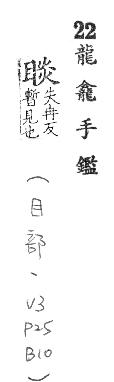 22龍龕手鑑
睒失冉反
暫見也
(目部、V3
P25
B10)